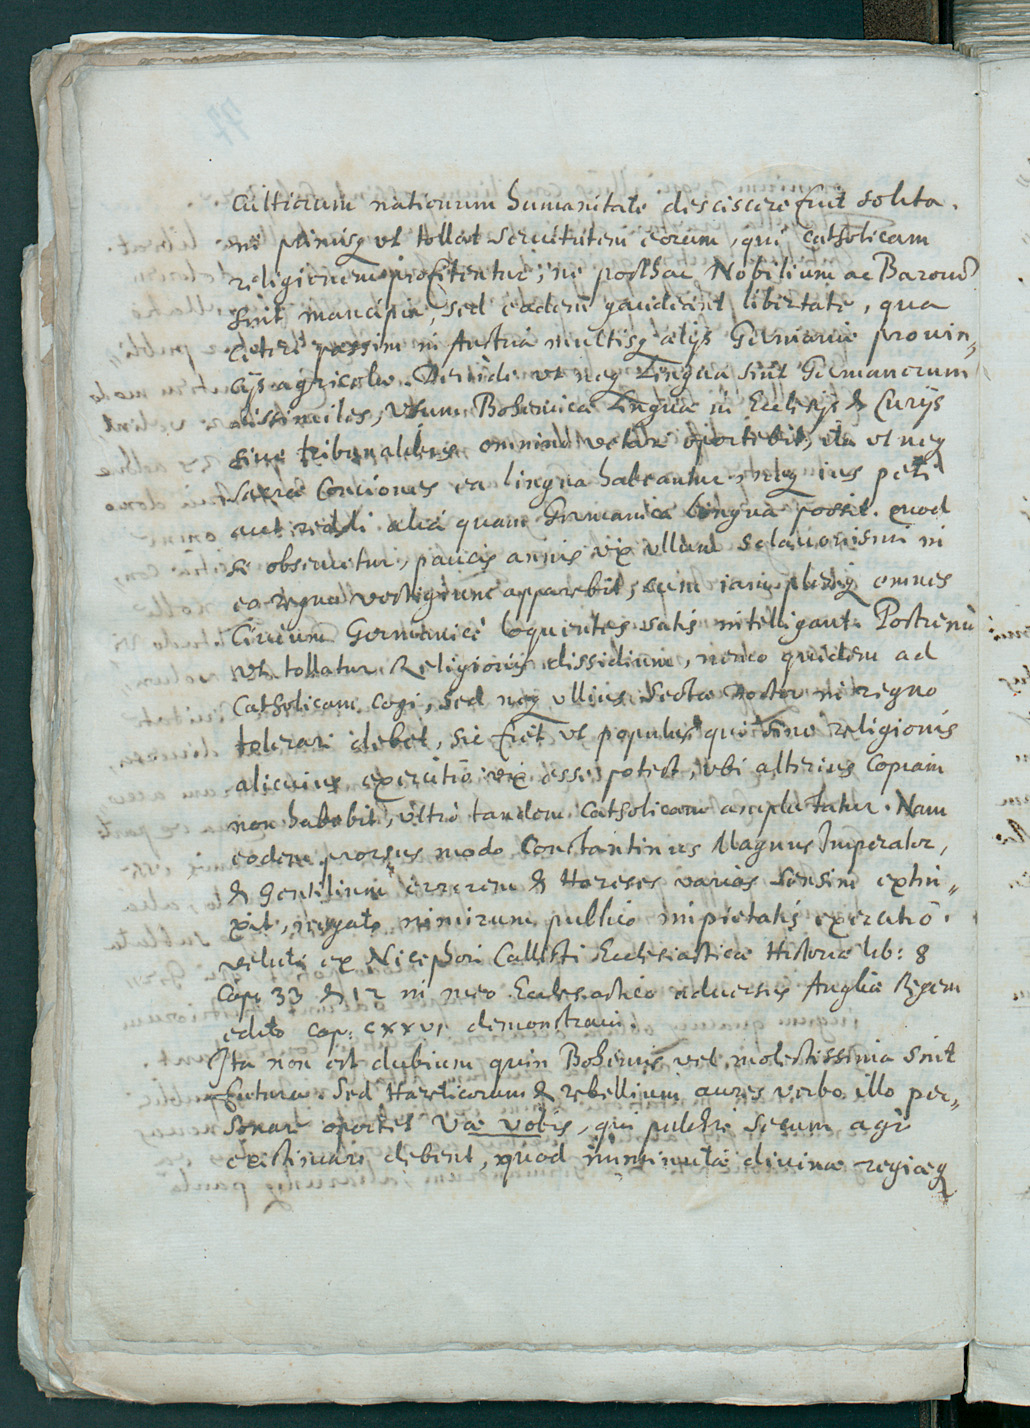 cultiorum nationum humanitate desciscere fuit solita.
in primisq vt tollat seruitutem eorum, qui Catholicam
religionem profitentur, ne posthac Nobilium ac Baronū
sint mancipia, sed eadem gaudeant libertate, qua
ceteri passim in Austria multisq alijs Germaniæ prouin„
cijs agricolæ. Deinde vt neq Lingua sint Germanorum
dissimiles, Vsum Bohemicæ Linguæ in Eccles̄ijs & Curijs
siue tribunalibus omnino vetari oportebit, ita vt neq
Sacræ Conciones ea lingua habeantur, neq ius peti
aut reddi aliâ quam Germanicâ linguâ possit. quod
si obseruetur, paucis annis vix vllum Sclauonismi in
eo regno vestigium apparebit, cum iam pleriq omnes
Ciuium Germanicè loquentes satis intelligant. Postremù
vt tollatur Religionis dissidium, nemo quidem ad
Catholicam cogi, sed neq vllius Sectæ Doctor in regno
tolerari debet, sic fiet vt populus qui sine religionis
alicuius exercitiō vix esse potest, vbi alterius Copiam
non habebit, vltrò tandem Catholicam amplectatur. Nam
eodem prorsus modo Constantinus Magnus Imperator,
& Gentilium errorem & Hæreses varias sensim extin„
xit, negato nimirum publico impietatis exercitiō.
veluti ex Nicephori Callisti Ecclesiasticæ Historiæ lib: 8
Cap: 33 & in meo Ecclesiastico aduersus Angliæ Regem
edito cap: CXXVI demonstraui.
Ita non est dubium quin Bohemis vel molestissima sint
futura. Sed Hæreticorum & rebellium aures verbo illo per„
sonare oportet Væ vobis, qui pulchrè secum agi
existimare debent, quod imminuta diuinæ regiæq